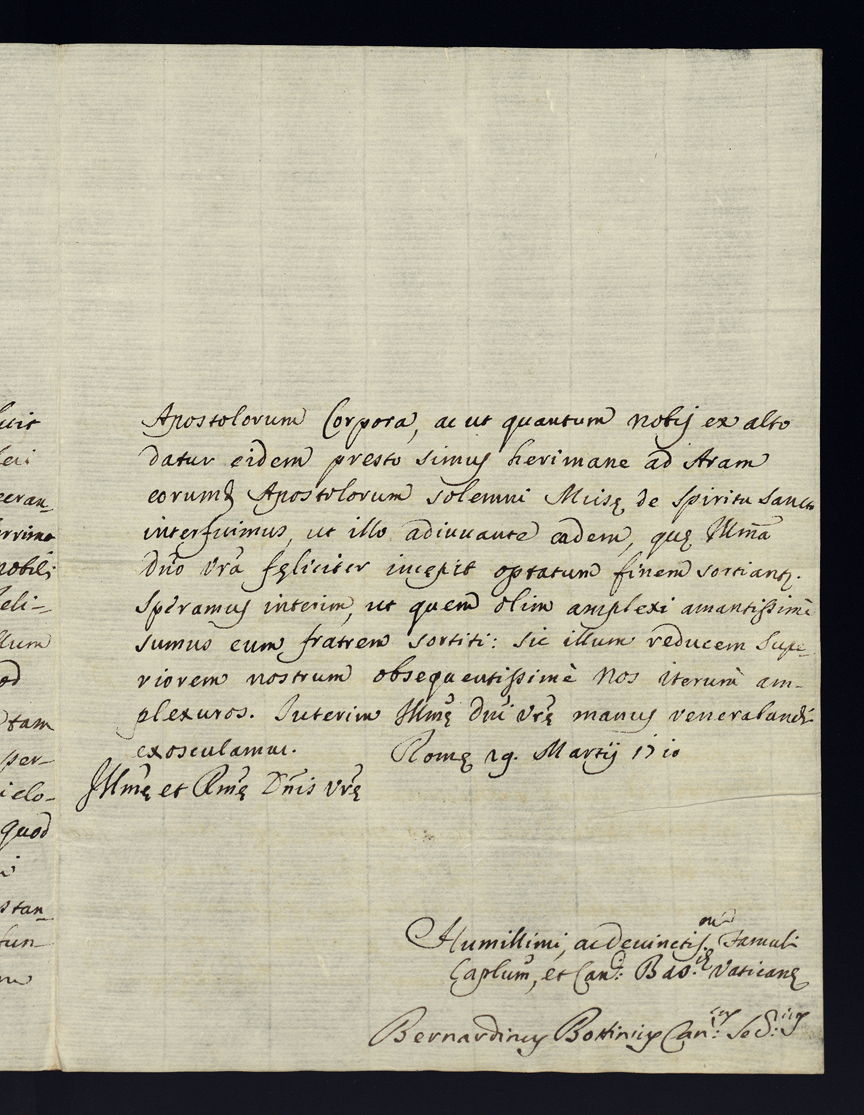 Apostolorum Corpora, ac ut quantum nobis ex alto
datur eidem presto simus herimane ad Aram
eorumq Apostolorum solemni Missę de Spiritu Sancto
interfuimus, ut illo adiuvante eadem, quę Illma
Dño Vrã fęliciter incepit optatum finem sortiantr.
Speramus interim, ut quem olim amplexi amantissimè
sumus eum fratrem sortiti: sic illum reducem Supe-
riorem nostrum obsequentissimè nos iterum am-
plexuros. Interim Illmę Dnĩ Vrę manus venerabundi
exosculamur. Romę 29. Martij 1710
Illmę et Rmę Dñis Vrę
Humillimi, ac devinctis.mi Famuli
Caplum, et Can.ci Bas.cę Vaticanę
Bernardinus Can.cus Sec.rius
tam
per-
quod
stan-